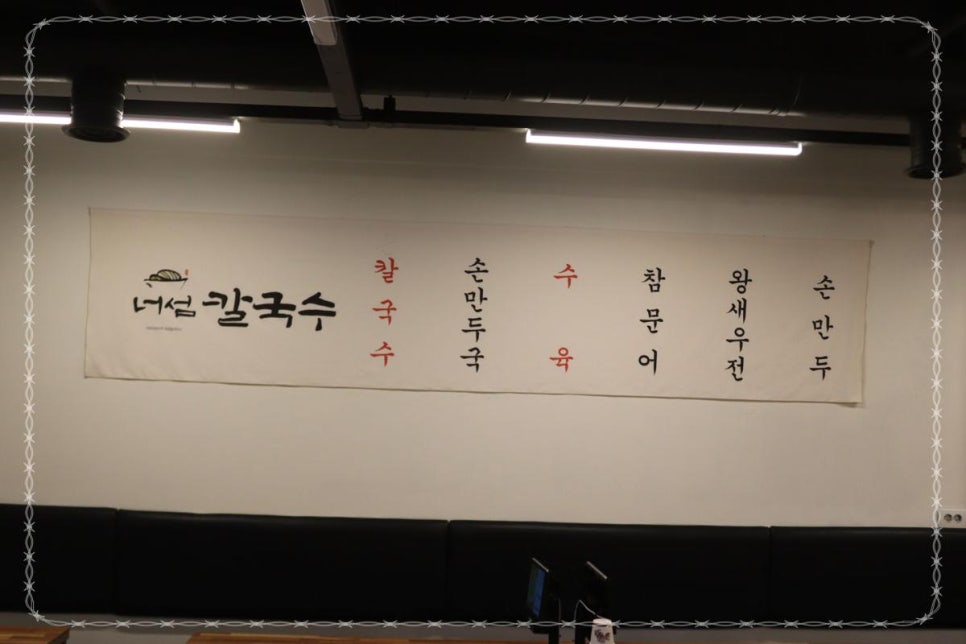 너섬 칼국수
칼국수
손만두국
수육
참문어
왕새우전
손만두